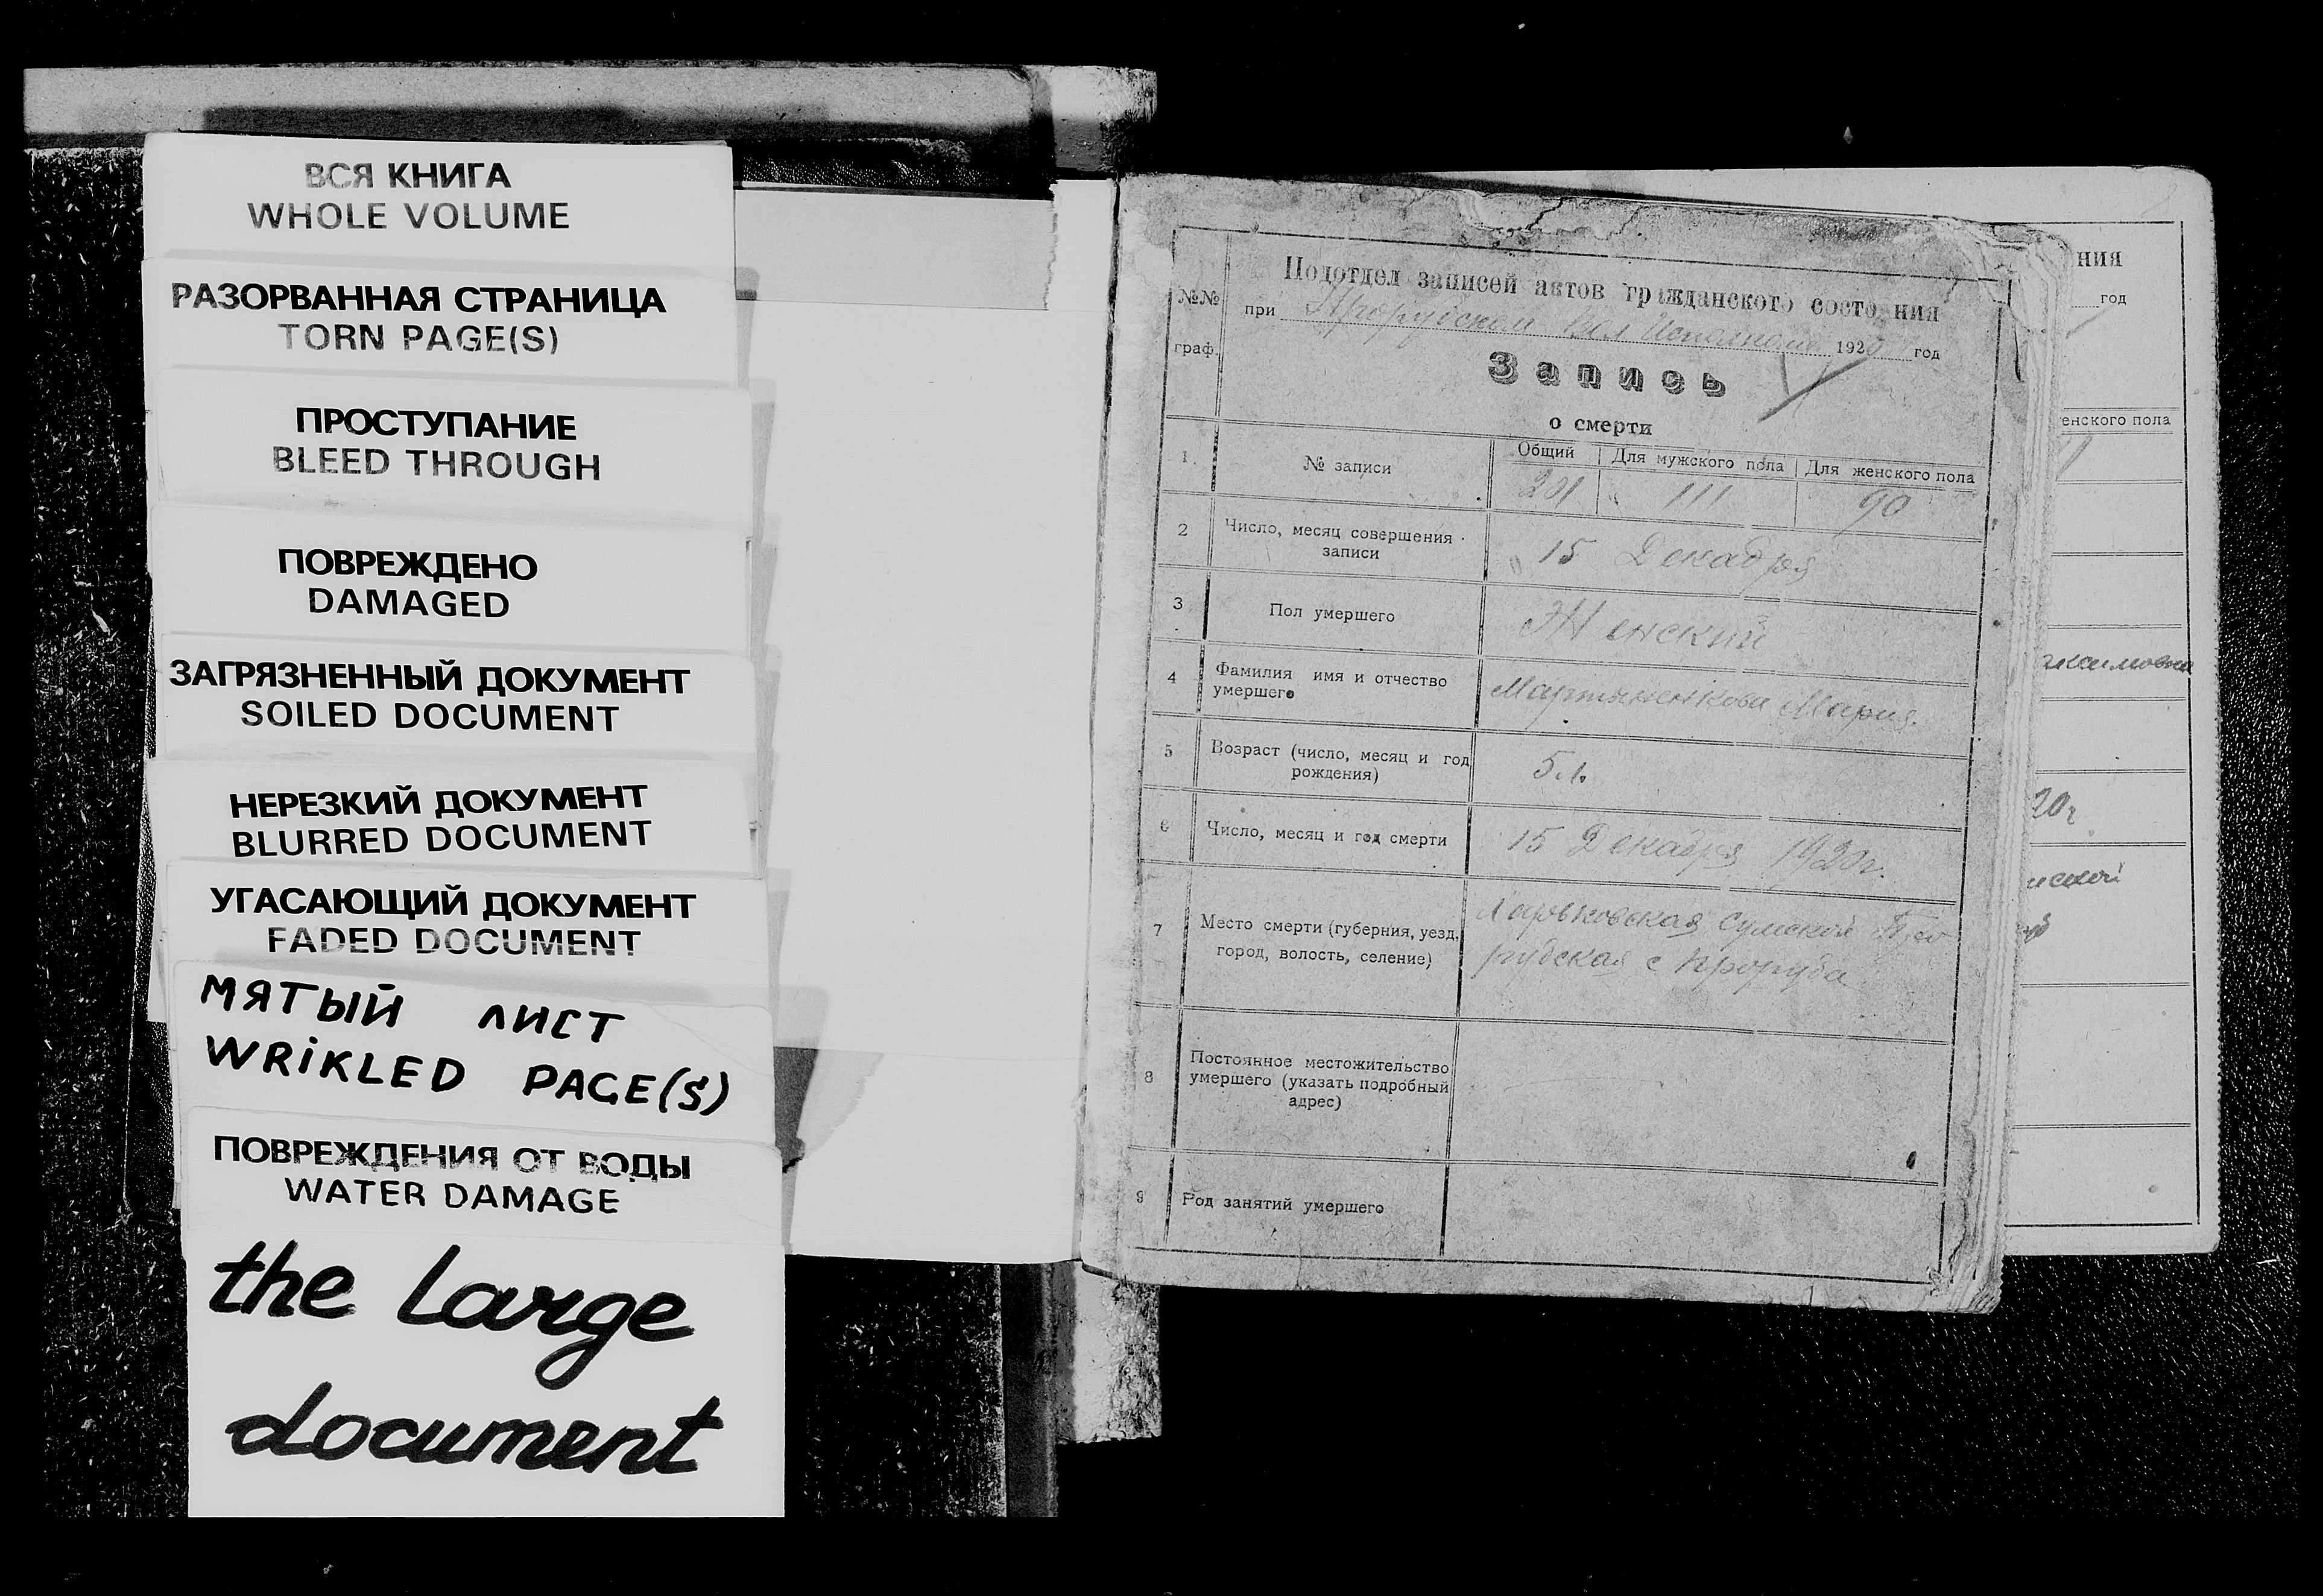 ВСЯ КНИГА
WHOLE VOLUME
РАЗОРВАННАЯ СТРАНИЦА
TORN PAGE(S)
ПРОСТУПАНИЕ
BLEED THROUGH
ПОВРЕЖДЕНО
DAMAGED
ЗАГРЯЗНЕННЫЙ ДОКУМЕНТ
SOILED DOCUMENT
НЕРЕЗКИЙ ДОКУМЕНТ
BLURRED DOCUMENT
УГАСАЮЩИЙ ДОКУМЕНТ
FADED DOCUMENT
МЯТЫЙ ЛИСТ
WRIKLED PAGE(S)
ПОВРЕЖДЕНИЯ ОТ ВОДЫ
WATER DAMAGE
the large
document
№№ граф.
Подотдел записей актов гражданского состояния
при Прорубском Вол Исполкоме 1920 год
Запись
о смерти
1 № записи
Общий Для мужского пола Для женского пола
201 " 111 90
2 Число, месяц совершения
записи
" 15 Декабря
3 Пол умершего
Женский
4 Фамилия имя и отчество
умершего
Мария.
5 Возраст (число, месяц и год
рождения)
5 л.
6 Число, месяц и год смерти
15 Декабря 1920г.
7 Место смерти (губерния, уезд,
город, волость, селение)
Харьковская Сумской Про
рубская с Проруба
8 Постоянное местожительство
умершего (указать подробный
адрес)
9 Род занятий умершего
ния
год
енского пола
аксимовна
20г